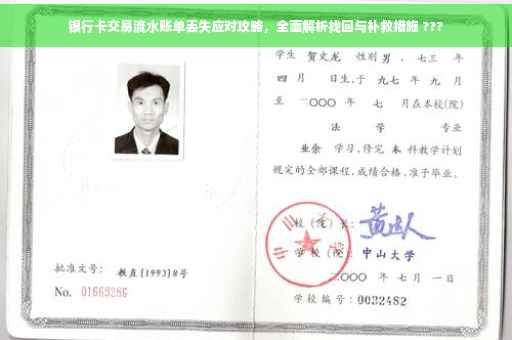 银行卡交易流水账单丢失应对攻略，全面解析找回与补救措施 ???
学生 贺文龙 性别 男 、七三 年
四 月 日生,于 九七 年 九 月
至 二〇〇〇 年 七 月在本校(院)
法 学 专业
业余 学习,修完 本 科教学计划
规定的全部课程,成绩合格,准予毕业。
校 (院) 长:
学 校 (院): 中山大学
批准文号: 教直[1993]8号
二〇〇〇 年 七 月 一 日
No. 01669286
学校编号: 0032482